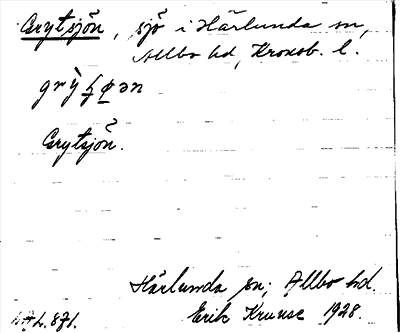 Grytsjön, sjö i Härlunda sn,
Allbo hd, Kronob. l.
Grytsjön.
Härlunda sn; Allbo hd.
Erik Kruuse 1928.